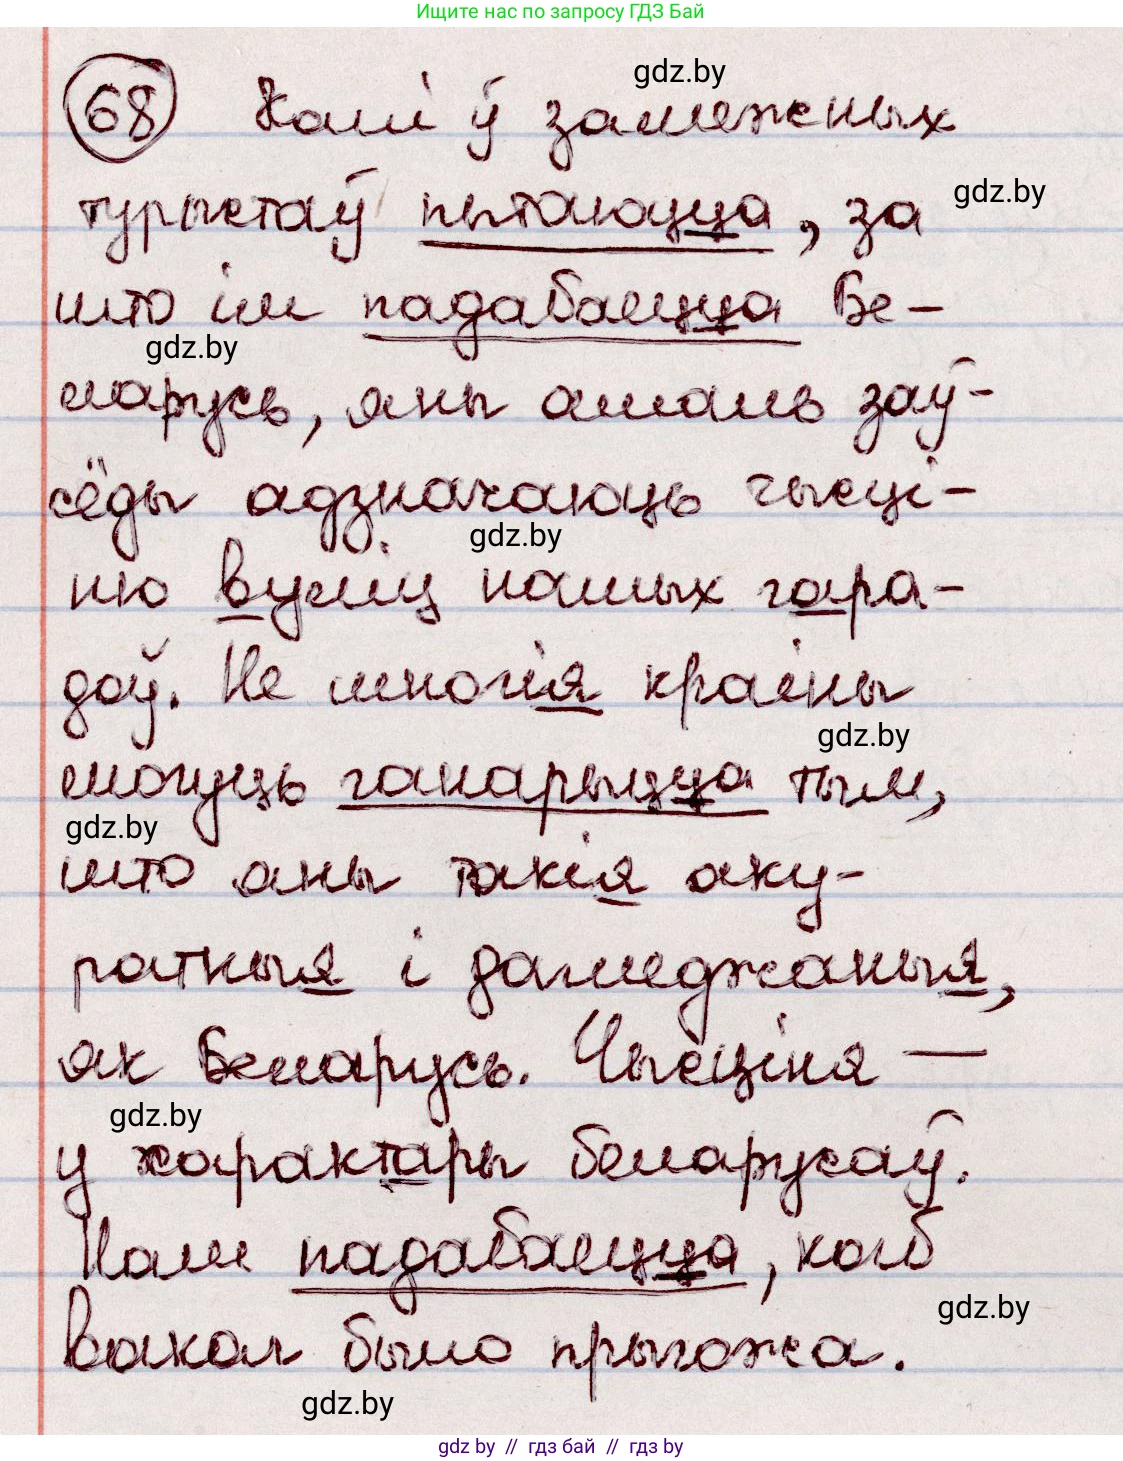 Ищите нас по запросу ГДЗ Бай
gdz.by
68 Калі ў замежных
gdz.by
турыстаў пытаюцца, за
што ім падабаецца Бе-
gdz.by
ларусь, яны амаль заў-
сёды адзначаюць чысці-
gdz.by
ню вуліц нашых гара-
доў. Не многія краіны
gdz.by
могуць ганарыцца тым,
gdz.by
што яны такія аку-
ратныя і дагледжаныя,
як Беларусь. Чысціня —
gdz.by
у характары беларусаў.
Нам падабаецца, каб
gdz.by
вакол было прыгожа.
gdz.by
gdz by // гдз бай // гдз by